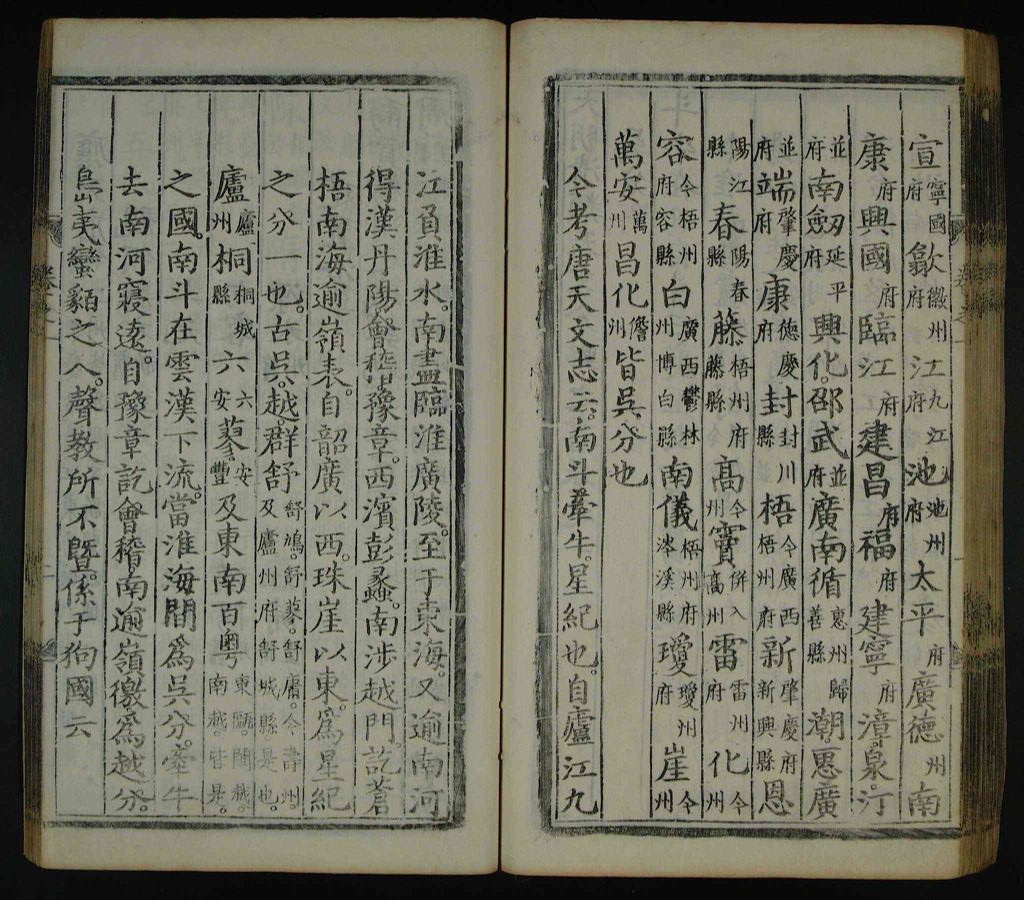 宣寧國府歙徽州府江九江府池池州府太平府廣德州南
康府興國府臨江府建昌府福府建寧府漳泉汀
並府南劒延平府興化邵武並府廣南循惠州歸善縣潮惠廣
並府端肇慶府康德慶府封封川縣梧今廣西梧州府新肇慶府新興縣恩
陽江縣春陽春縣藤梧州府藤縣高今州竇併入高州雷雷州府化今州
容今梧州府容縣白廣西鬱林州博白縣南儀梧州府岑溪縣瓊瓊州府崖今州
萬安萬州昌化儋州皆吳分也
今考唐天文志云南斗牽牛。星紀也。自廬江九
江負淮水。南盡臨淮廣陵。至于東海。又逾南河
得漢丹陽。會稽。豫章。西濱彭蠡。南涉越門。訖蒼
梧南海。逾嶺表。自韶廣以西。珠崖以東。爲星紀
之分一也。古吳。越。群舒舒鳩。舒蓼。舒庸。今壽州。及廬州府舒城縣是也。
廬廬州桐桐城縣六六安蓼安豐及東南百粤東甌。閩越。南越。皆是。
之國。南斗在雲漢下流。當淮海間爲吳分。牽牛
去南河寖遠。自豫章訖會稽。南逾嶺徼爲越分。
島夷蠻貊之人。聲教所不曁。係于狗國云